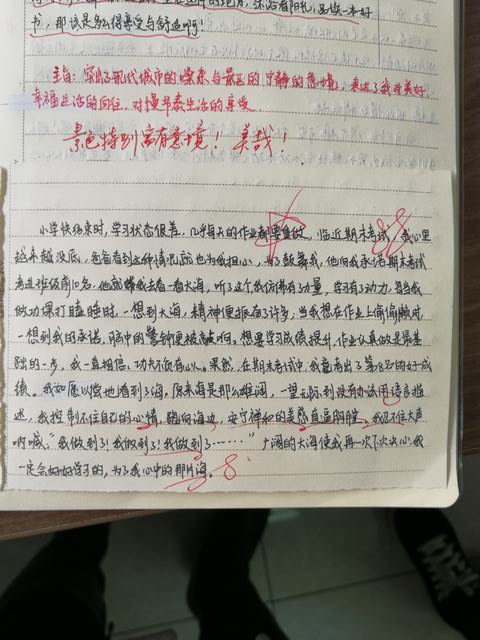 书，那该是多么得享受与舒适啊！
主旨：突出了现代城市的喧杂与景区的宁静的意境，表达了我对美好
幸福生活的向往，对慢节奏生活的享受
景色特别富有意境！美哉！
小学快结束时，学习状态很差，几乎每天的作业都要重做，临近期末考试，我心里
越来越没底，爸爸看到这种情况后也为我担心，为了鼓舞我，他向我承诺期末考试
考进班级前10名，他就带我去看一看大海，听了这个我仿佛有了力量，学习有了动力，每当我
做功课打瞌睡时，一想到大海，精神便振奋了许多，当我想在作业上偷偷懒时，
一想到我的承诺，脑中的警钟便被敲响。想要学习成绩提升，作业认真做是最基
础的一步，我一直相信，功夫不负有心人。果然，在期末考试中，我竟考出了第8名的好成
绩。我如愿以偿也看到了海，原来海是那么雄阔，一望无际到没有办法用语言描
述，我控制不住自己的心情，跑向海边，安宁祥和的美感直逼胸膛，我忍不住大声
呐喊，“我做到了！我做到了！我做到了……”广阔的大海使我再一次下决心，我
一定会好好学习的，为了我心中的那片海。